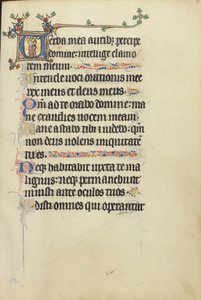 Verba mea auribus percipe
domine: intellige clamo
rem meum.
Intende voci orationis mee
rex meus et deus meus.
Qm ad te orabo domine: ma
ne exaudies vocem meam.
Mane astabo tibi et videbo: qm
non deus volens iniquitatē
tu es.
Neqz habitabit iuxta te ma
lignus: neqz permanebunt
iniusti ante oculos tuos.
Odisti omnes qui operantur